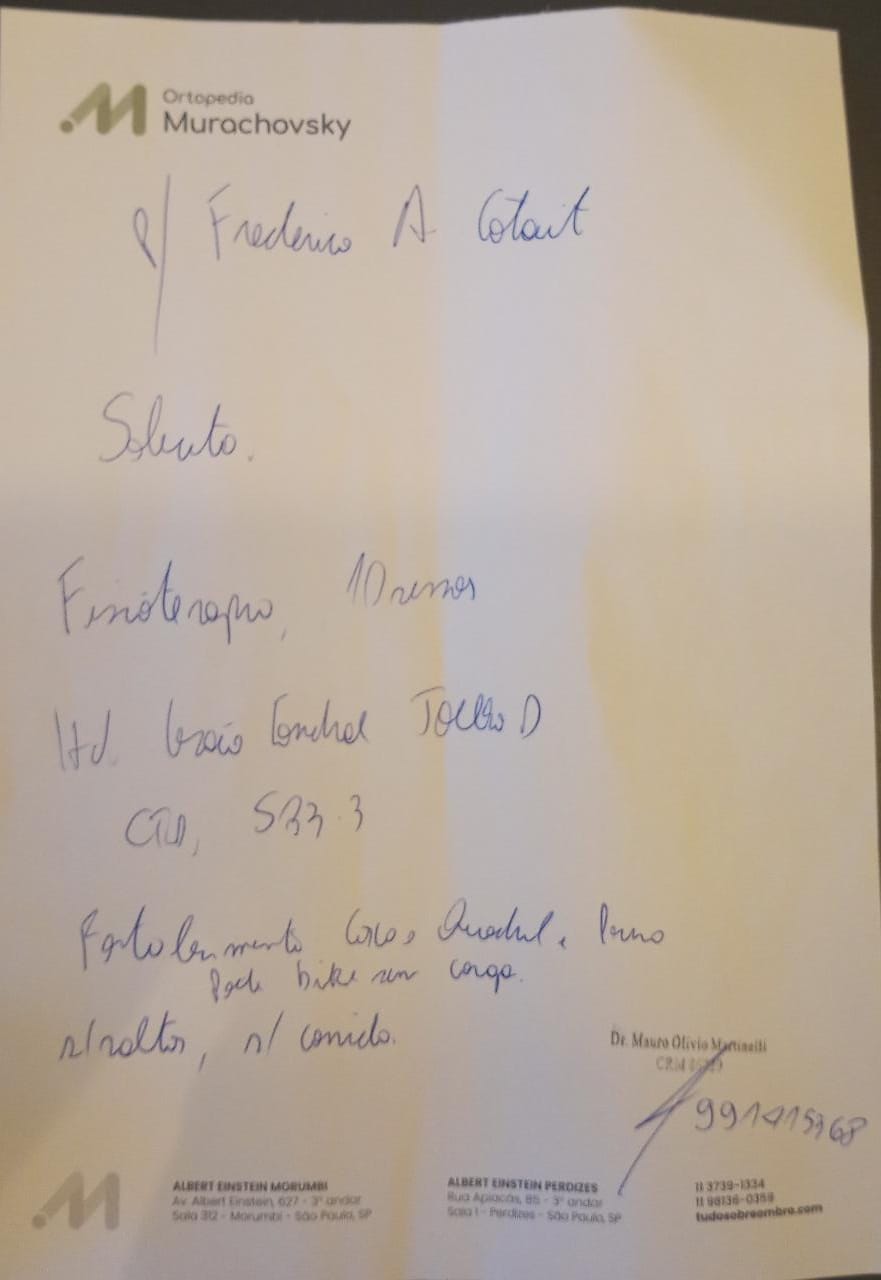 Ortopedia
Murachovsky
p/ Frederico A Cotait
Solicito.
Fisioterapia, 10 sessões
Hd. lesão Condral Joelho D
CID, S83.3
Fortalecimento Core, Quadril, Perna
Pode bike sem carga.
s/ saltos, s/ corrida.
Dr. Mauro Olivio Martinelli
CRM
ALBERT EINSTEIN MORUMBI
Av. Albert Einstein, 627 - 3º andar
Sala 312 - Morumbi - São Paulo, SP
ALBERT EINSTEIN PERDIZES
Rua Apiacás, 85 - 3º andar
Sala 1 - Perdizes - São Paulo, SP
11 3739-1334
11 98136-0359
tudosobreombro.com